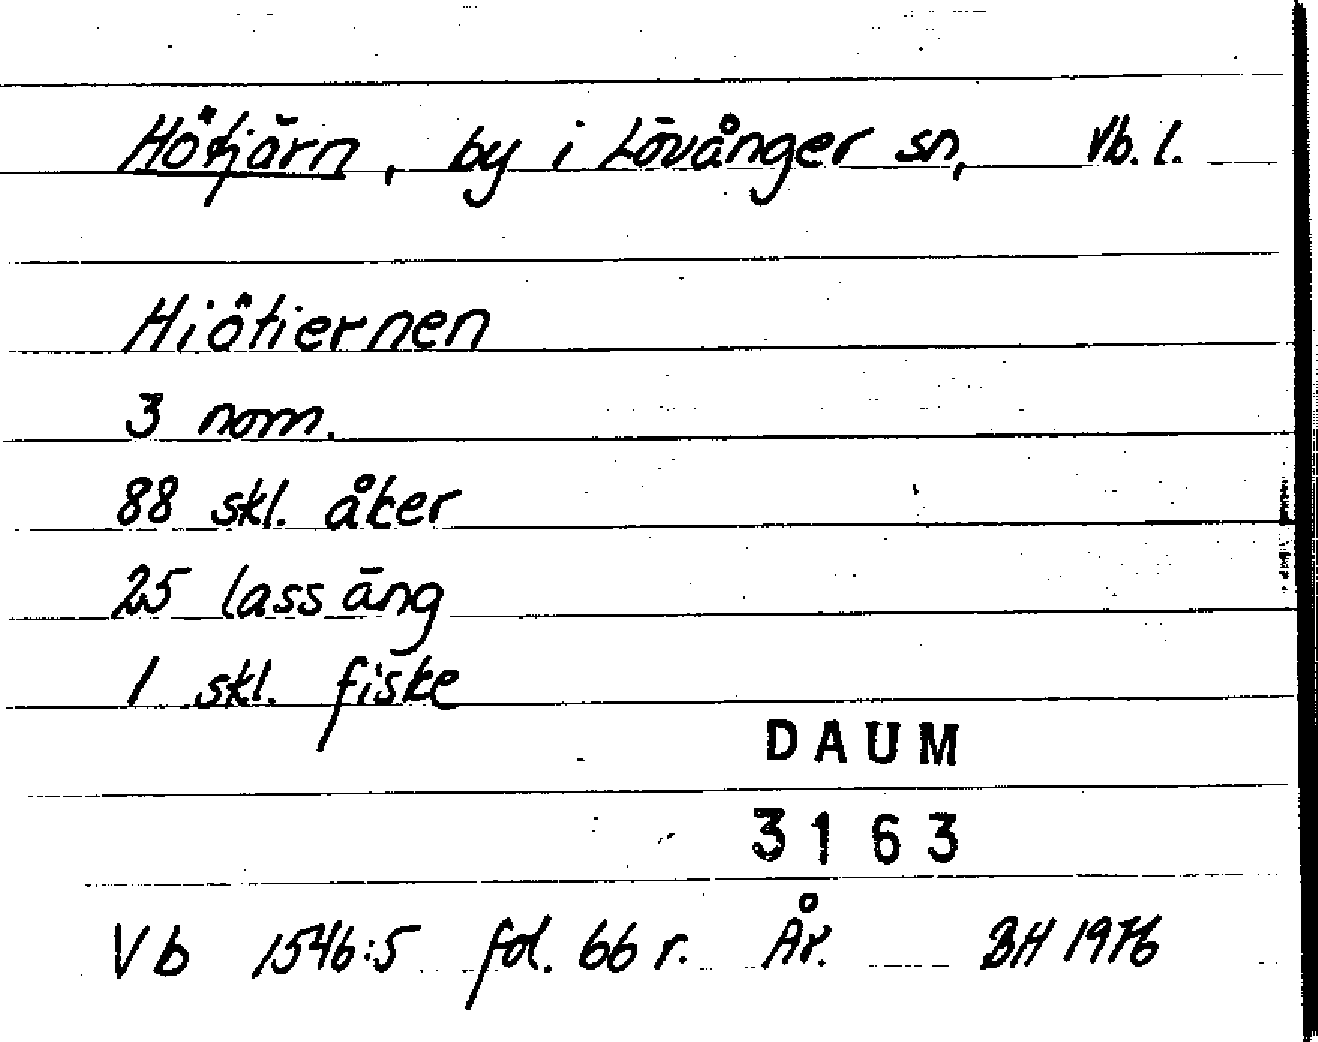 Hötjärn, by i Lövånger sn, Vb. l.
Hiötiernen
3 nom.
88 skl. åker
25 lass äng
1 skl. fiske
DAUM
3163
Vb 1546:5 fol. 66 r. År. BH 1976